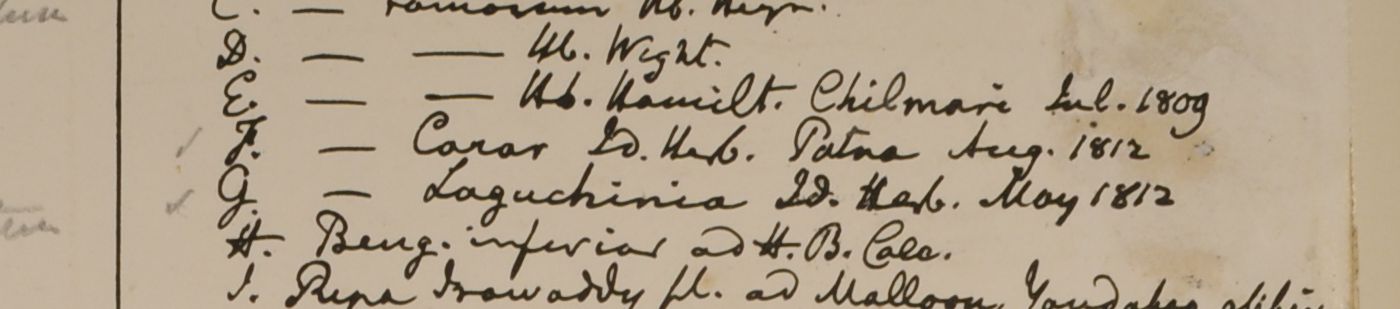 C. — ramosum Hb. Heyn.
D. — — Hb. Wight.
E. — — Hb. Hamilt. Chilmari Jul. 1809
F. — Carar Id. Herb. Patna Aug. 1812
G. — Laguchinia Id. Herb. May 1812
H. Beng. inferior ad H. B. Calc.
I. Ripa Irawaddy fl. ad Malloon,